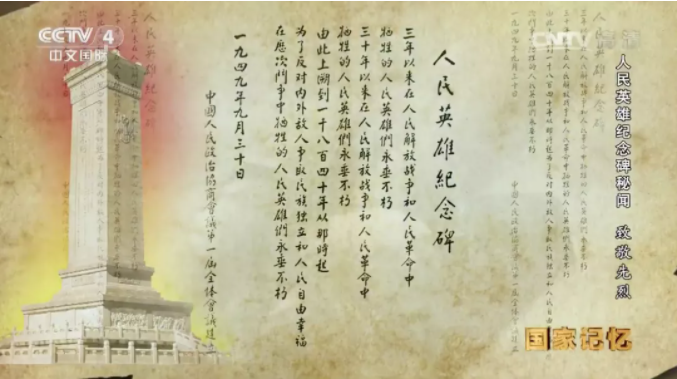 CCTV 4
中文国际
CNTV 高清
人民英雄纪念碑秘闻 致敬先烈
人民英雄紀念碑
三年以来在人民解放战争和人民革命中
牺牲的人民英雄們永垂不朽
三十年以来在人民解放战争和人民革命中
牺牲的人民英雄們永垂不朽
由此上溯到一千八百四十年从那時起
为了反对内外敌人争取民族獨立和人民自由幸福
在歷次鬥争中牺牲的人民英雄們永垂不朽
一九四九年九月三十日
中國人民政治協商會議第一屆全体會議建立
国家记忆